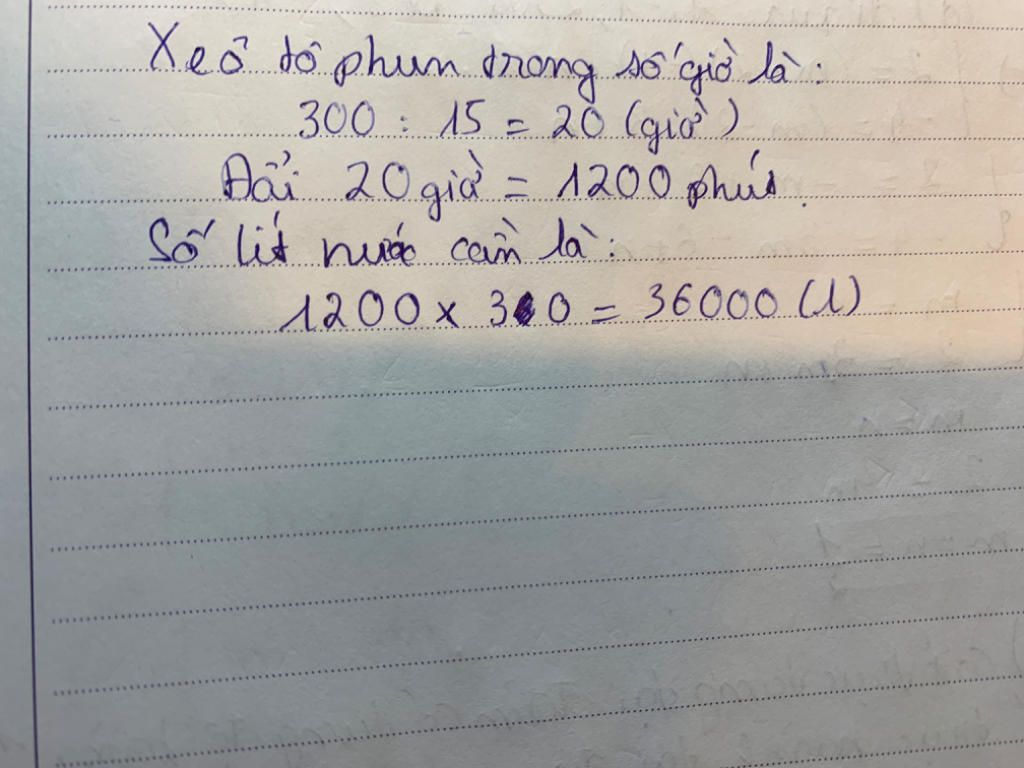 Xe ô tô phun trong số giờ là:
300 : 15 = 20 (giờ)
Đổi 20 giờ = 1200 phút.
Số lít nước cần là:
1200 x 30 = 36000 (l)